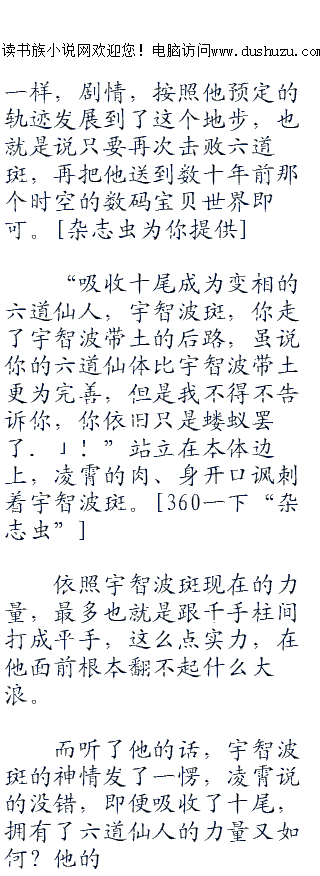 读书族小说网欢迎您！电脑访问www.dushuzu.com
一样，剧情，按照他预定的
轨迹发展到了这个地步，也
就是说只要再次击败六道
斑，再把他送到数十年前那
个时空的数码宝贝世界即
可。[杂志虫为你提供]
“吸收十尾成为变相的
六道仙人，宇智波斑，你走
了宇智波带土的后路，虽说
你的六道仙体比宇智波带土
更为完善，但是我不得不告
诉你，你依旧只是蝼蚁罢
了．」！”站立在本体边
上，凌霄的肉、身开口讽刺
着宇智波斑。[360一下“杂
志虫”]
依照宇智波斑现在的力
量，最多也就是跟千手柱间
打成平手，这么点实力，在
他面前根本翻不起什么大
浪。
而听了他的话，宇智波
斑的神情发了一愣，凌霄说
的没错，即便吸收了十尾，
拥有了六道仙人的力量又如
何？他的